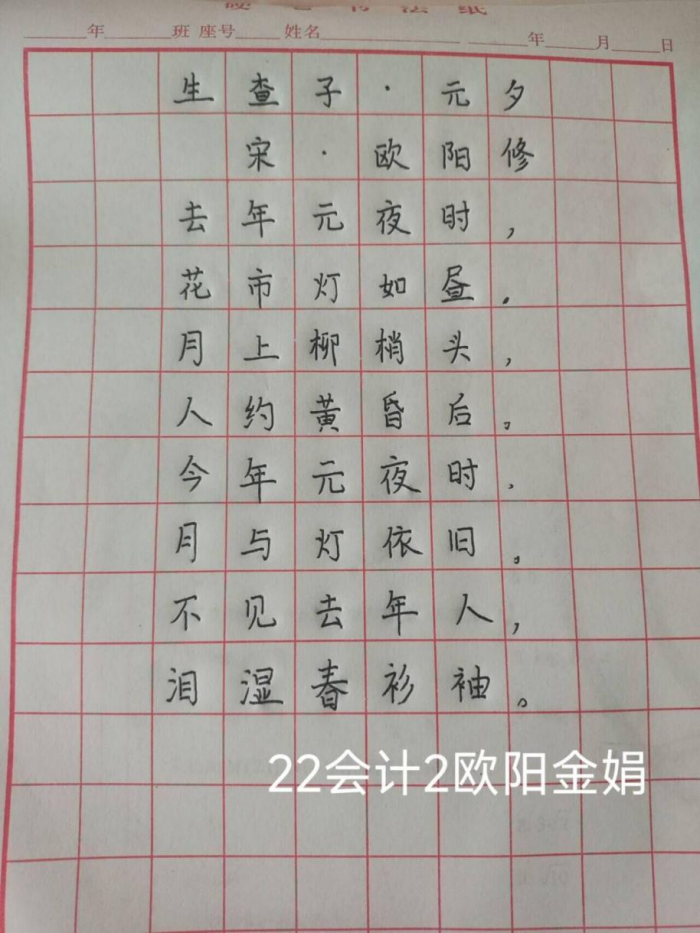 硬笔书法纸
年 班 座号 姓名 年 月 日
生查子·元夕
宋·欧阳修
去年元夜时，
花市灯如昼。
月上柳梢头，
人约黄昏后。
今年元夜时，
月与灯依旧。
不见去年人，
泪湿春衫袖。
22会计2欧阳金娟